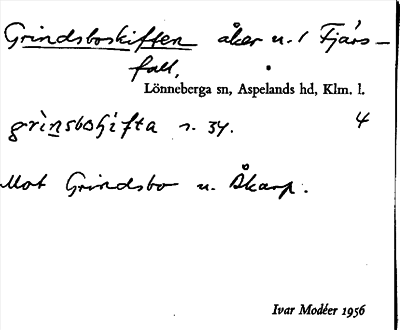 Grindsboskiften åker u. / Fjärs-
fall,
Lönneberga sn, Aspelands hd, Klm. l.
grìnsboʃìfta s. 34. 4
Mot Grindsbo u. Åkarp.
Ivar Modéer 1956